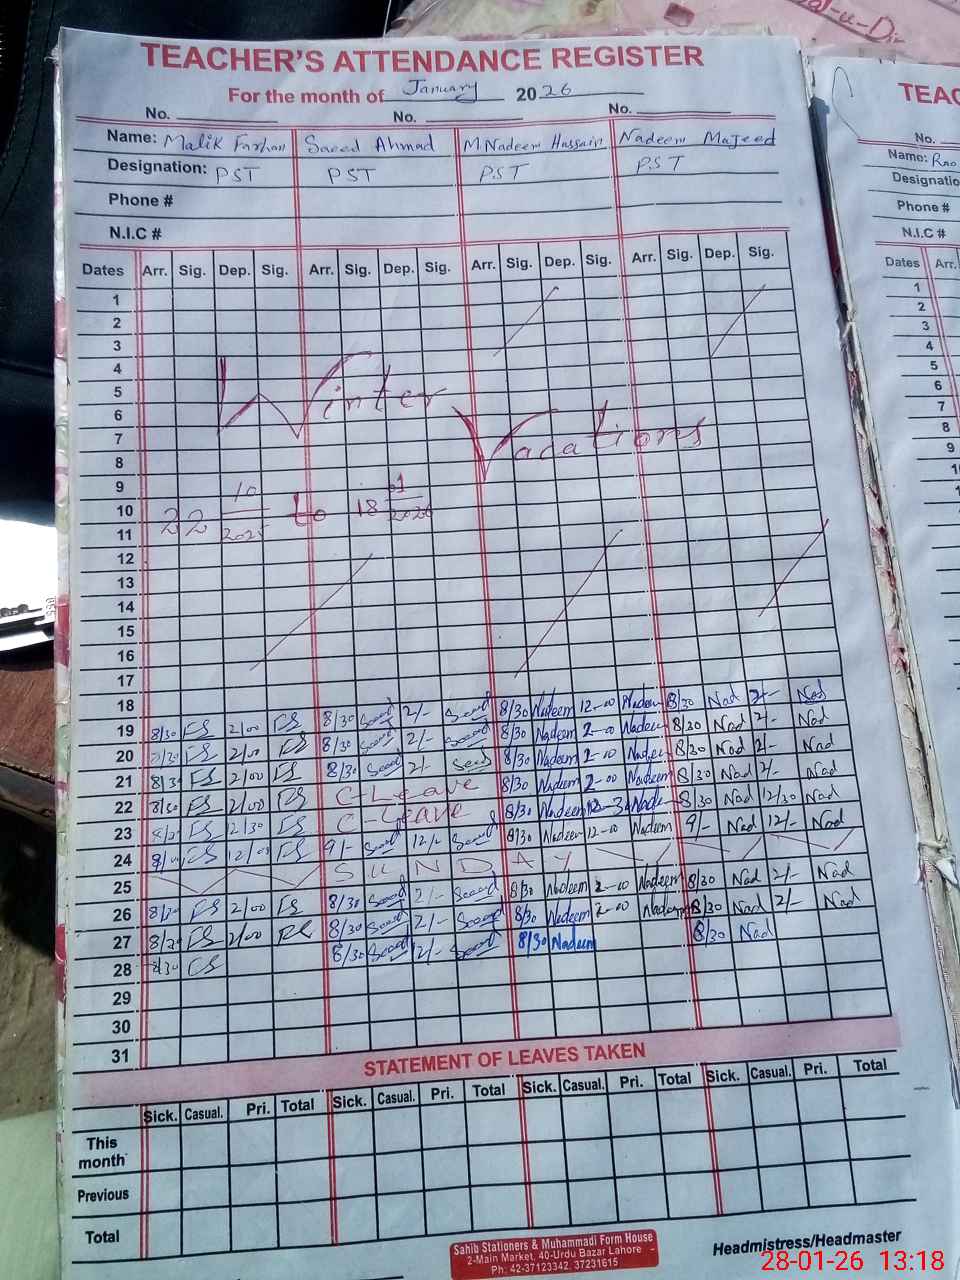 TEACHER'S ATTENDANCE REGISTER
For the month of January 2026
No. No. No.
Name: Malik Farhan Saeed Ahmad M Nadeem Hussain Nadeem Majeed
Designation: PST PST PST PST
Phone #
N.I.C #
Dates Arr. Sig. Dep. Sig. Arr. Sig. Dep. Sig. Arr. Sig. Dep. Sig. Arr. Sig. Dep. Sig.
1
2
3
4
5
Winter
6
7
Vacations
8
9
10
22 10/2025 to 18 01/2026
11
12
13
14
15
16
17
18
19 8/30 FS 2/00 FS 8/30 Saeed 2/- Saeed 8/30 Nadeem 12-00 Nadeem 8/30 Nad 2/- Nad
20 8/30 FS 2/00 FS 8/30 Saeed 2/- Saeed 8/30 Nadeem 2-00 Nadeem 8/30 Nad 2/- Nad
21 8/30 FS 2/00 FS 8/30 Saeed 2/- Saeed 8/30 Nadeem 2-00 Nadeem 8/30 Nad 2/- Nad
22 8/30 FS 2/00 FS C-Leave 8/30 Nadeem 2-00 Nadeem 8/30 Nad 2/- Nad
23 FS 12/30 FS C-Leave 8/30 Nadeem 8/30 Nad 12/30 Nad
24 FS FS 9/- Saeed 12/- Saeed 8/30 Nadeem 12-00 Nadeem 9/- Nad 12/- Nad
25 SUNDAY
26 8/30 FS 2/00 FS 8/30 Saeed 2/- Saeed 8/30 Nadeem 2-00 Nadeem 8/30 Nad 2/- Nad
27 FS 2/00 FS 8/30 Saeed 2/- Saeed 8/30 Nadeem 2-00 Nadeem 8/30 Nad 2/- Nad
28 8/30 FS 8/30 Saeed 2/- Saeed 8/30 Nadeem 8/30 Nad
29
30
31
STATEMENT OF LEAVES TAKEN
Sick. Casual. Pri. Total Sick. Casual. Pri. Total Sick. Casual. Pri. Total Sick. Casual. Pri. Total
This month
Previous
Total
Sahib Stationers & Muhammadi Form House
2-Main Market, 40-Urdu Bazar Lahore
Ph: 42-37123342, 37231615
Headmistress/Headmaster
28-01-26 13:18
TEAC
No.
Name: Rao
Designatio
Phone #
N.I.C #
Dates Arr.
1
2
3
4
5
6
7
8
9
10
11